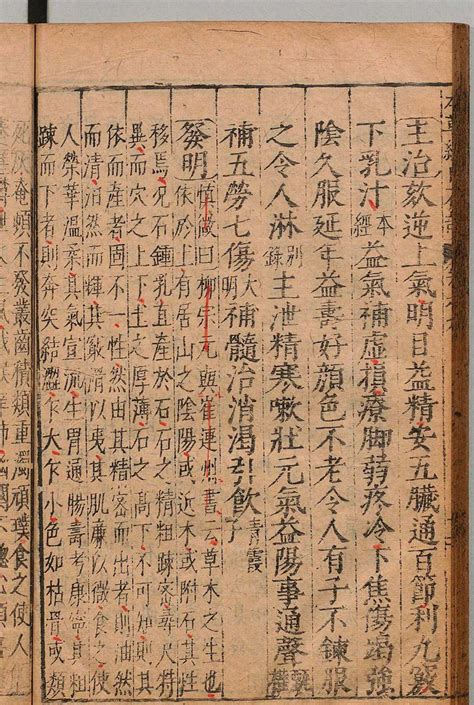 主治欬逆上氣明目益精安五臟通百節利九竅
下乳汁本經益氣補虛損療脚弱疼冷下焦傷竭強
陰久服延年益壽好顏色不老令人有子不鍊服
之令人淋別錄主泄精寒嗽壯元氣益陽事通聲甄權
補五勞七傷大明補髓治消渴引飲青霞子
發明慎微曰柳子元與崔連州書云草木之生也
依於土有居山之陰陽或近木或附石其性
移焉况石鍾乳直產於石石之精粗踈密尋尺特
異而穴之上下土之厚薄石之高下不可知則其
依而產者固不一性然由其精密而出者則油然
而清炯然而輝其竅滑以夷其肌廉以微食之使
人榮華溫柔其氣宣流生胃通腸壽考康寧其
踈而下者則奔突結澀乍大乍小色如枯骨或類
死灰奄頓不發叢齒積纇重濁頑璞食之使人